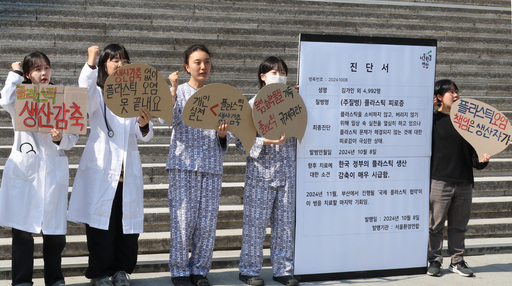 플라스틱 오염
생산감축
생산감축 없이
플라스틱 오염
못 끝내요
개인
실천
<
플라스틱
생산감축
플라스틱 오염
책임은 생산자!
서울환경연합
진 단 서
병록번호 : 20241008
성명
김가인 외 4,992명
질병명
(주질병) 플라스틱 피로증
최종진단
플라스틱을 소비하지 않고, 버리지 않기
위해 일상 속 실천을 열심히 하고 있으나
플라스틱 문제가 해결되지 않는 것에 대한
피로감이 극심한 상태
발병연월일
2024년 10월 8일
향후 치료에
대한 소견
한국 정부의 플라스틱 생산
감축이 매우 시급함.
2024년 11월, 부산에서 진행될 '국제 플라스틱 협약'이
이 병을 치료할 마지막 기회임.
발행일 : 2024년 10월 8일
발행기관 : 서울환경연합